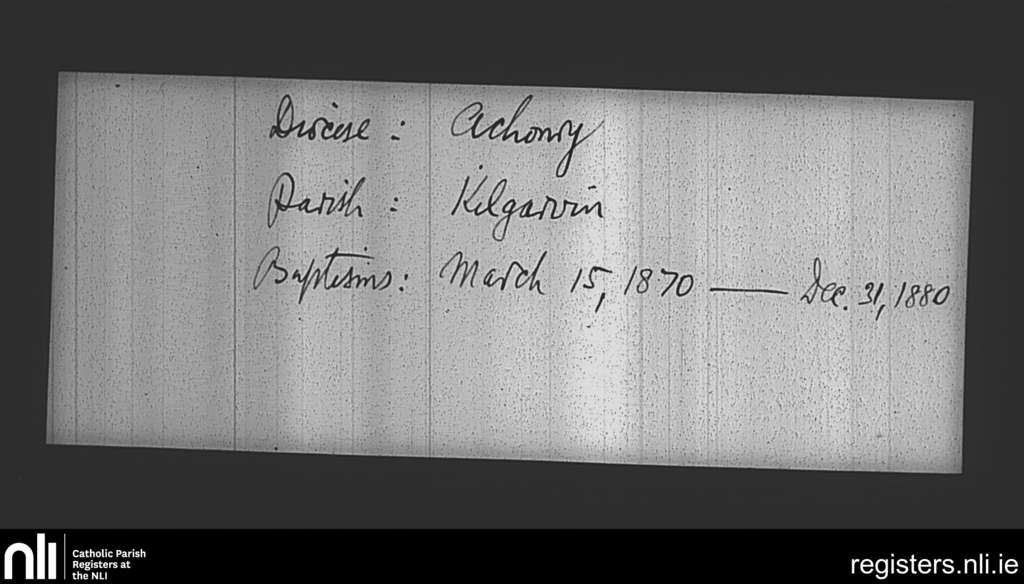 Diocese : Achonry
Parish : Kilgarvin
Baptisms : March 15, 1870 — Dec. 31, 1880
nli
Catholic Parish
Registers at
the NLI
registers.nli.ie